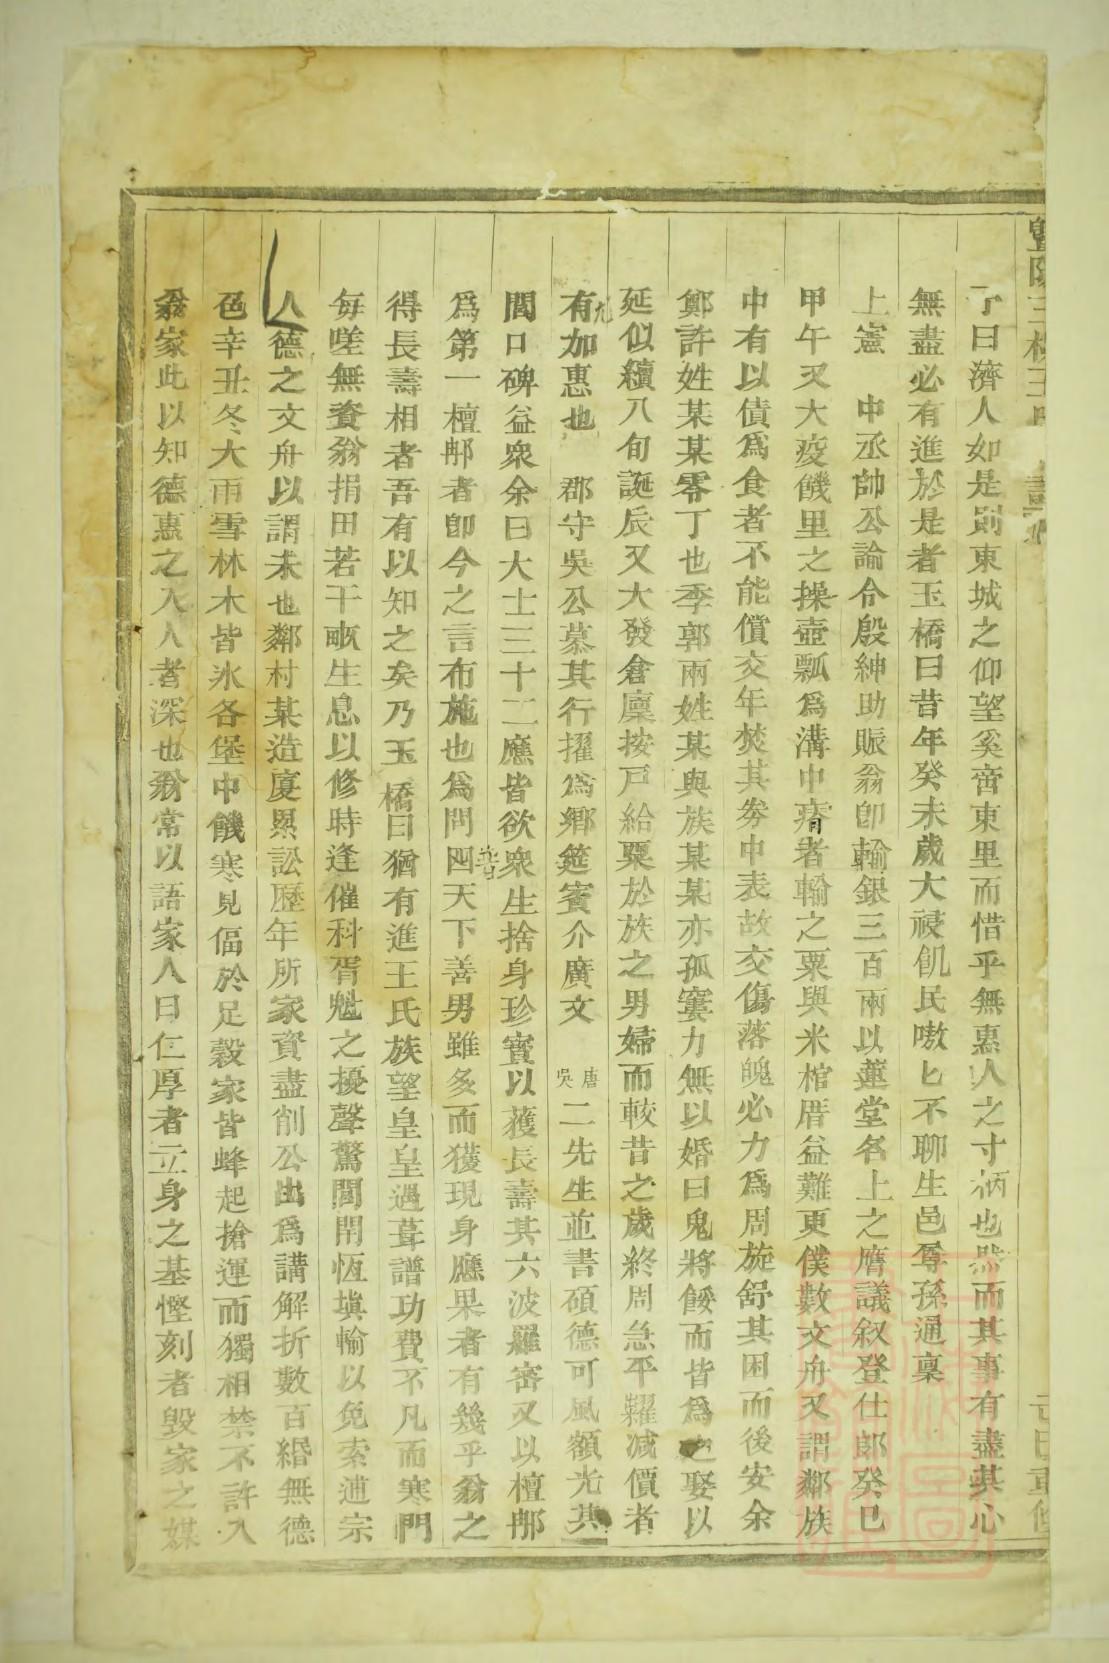 暨陽
了曰濟人如是則東城之仰望奚啻東里而惜乎無惠人之寸柄也然而其事有盡其心
無盡必有進於是者玉橋曰昔年癸未歲大祲飢民嗷匕不聊生邑尊孫通稟
上憲 中丞帥公諭令殷紳助賑翁卽輸銀三百兩以蓮堂名上之膺議叙登仕郎癸巳
甲午又大疫饑里之操壺瓢爲溝中瘠者輸之粟與米棺厝益難更僕數文舟又謂鄰族
中有以債爲食者不能償交年焚其券中表故交傷落魄必力爲周旋舒其困而後安余
鄭許姓某某零丁也季郭兩姓某與族某某亦孤窶力無以婚曰鬼將餒而皆爲之娶以
延似續八旬誕辰又大發倉廩按戸給粟於族之男婦而較昔之歲終周急平糶減價者
有加惠也 郡守吳公慕其行擢爲鄉筵賓介廣文 唐吳二先生並書碩德可風額光其
閭口碑益衆余曰大士三十二應皆欲衆生捨身珍寳以獲長壽其六波羅密又以檀郍
爲第一檀郍者卽今之言布施也爲問四天下善男雖多而獲現身應果者有幾乎翁之
得長壽相者吾有以知之矣乃玉橋曰猶有進王氏族望皇皇過葺譜功費不凡而寒門
每嗟無資翁捐田若干畝生息以修時逢催科胥魁之擾聲驚閭閈恆塡輸以免索逋宗
人德之文舟以謂未也鄰村某造廈累訟歷年所家資盡削公出爲講解折數百緡無德
色辛丑冬大雨雪林木皆氷各堡中饑寒見偪於足穀家皆蜂起搶運而獨相禁不許入
翁家此以知德惠之入人者深也翁常以語家人曰仁厚者立身之基慳刻者毀家之媒